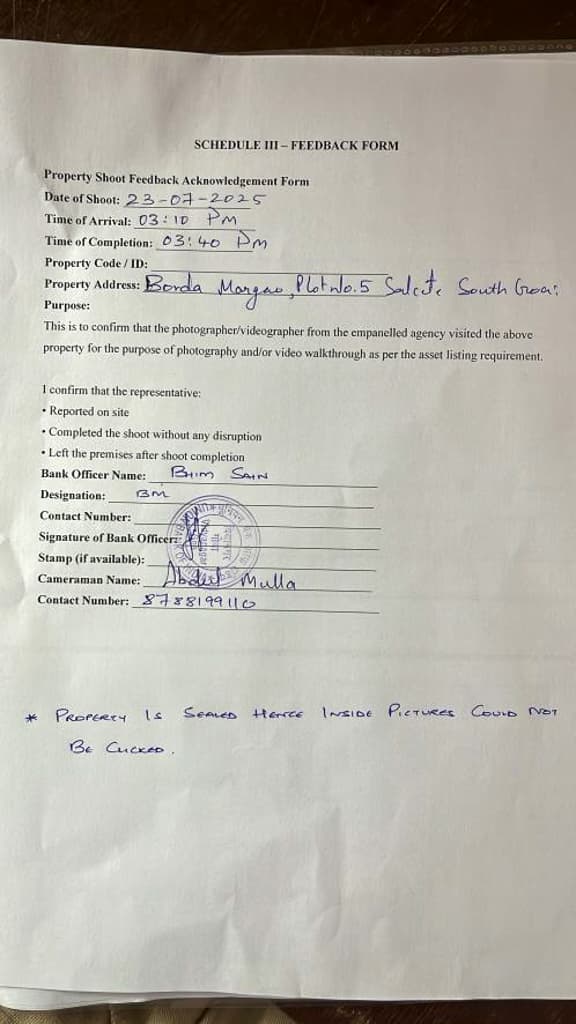 SCHEDULE III – FEEDBACK FORM
Property Shoot Feedback Acknowledgement Form
Date of Shoot: 23-07-2025
Time of Arrival: 03:10 PM
Time of Completion: 03:40 PM
Property Code / ID:
Property Address: Borda Margao, Plot No.5 Salcete South Goa.
Purpose:
This is to confirm that the photographer/videographer from the empanelled agency visited the above
property for the purpose of photography and/or video walkthrough as per the asset listing requirement.
I confirm that the representative:
• Reported on site
• Completed the shoot without any disruption
• Left the premises after shoot completion
Bank Officer Name: BHIM SAIN
Designation: BM
Contact Number:
Signature of Bank Officer:
Stamp (if available):
Cameraman Name: Mulla
Contact Number: 8788199110
* PROPERTY IS SEALED HENCE INSIDE PICTURES COULD NOT
BE CLICKED.